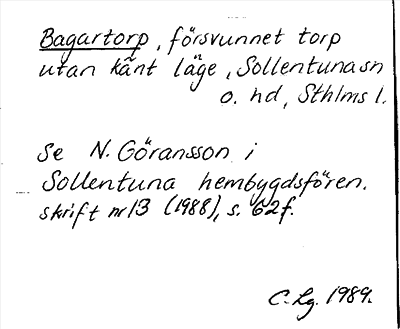 Bagartorp, försvunnet torp
utan känt läge, Sollentuna sn
o. hd, Sthlms l.
Se N. Göransson i
Sollentuna hembygdsfören.
skrift nr 13 (1988), s. 62f.
C. Lg. 1989.